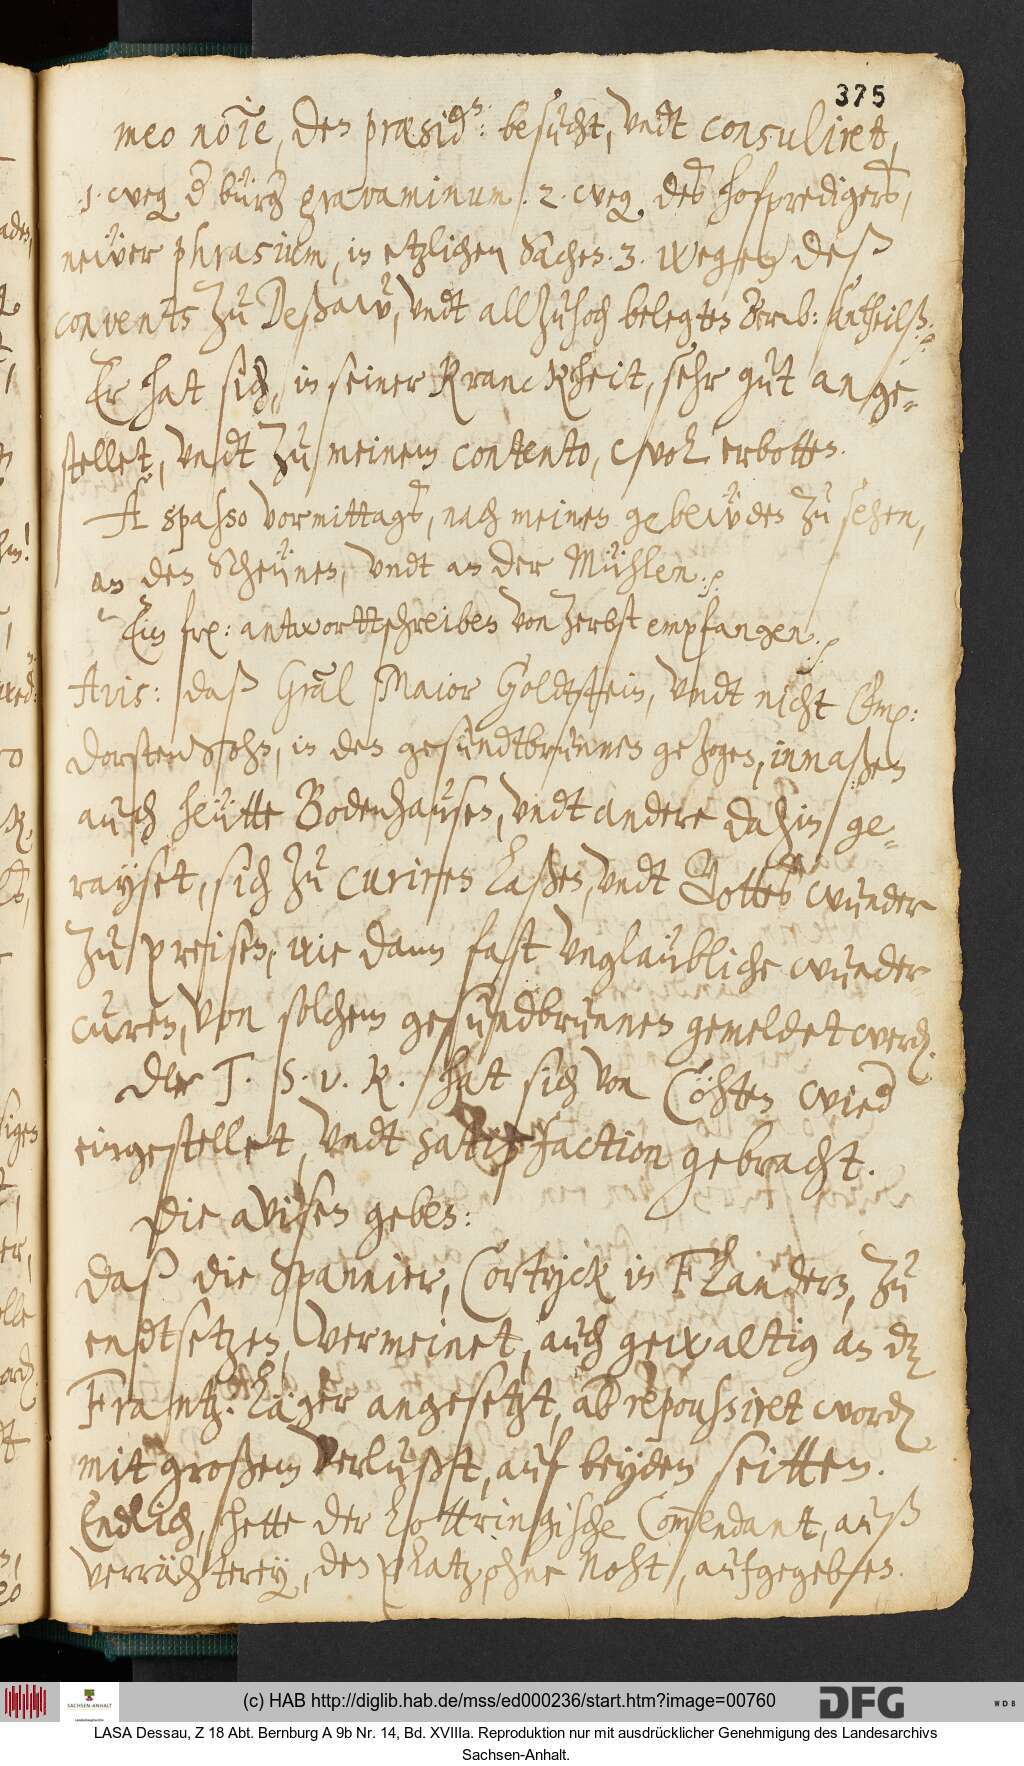 375
meo nôie, den præsid^{n.}: besucht, undt consuliret,
1. weg. d' bürg' gravaminum. 2. weg. des hofpredigers,
newer phrasium, in etzlichen Sachen. 3. wegen deß
convents zu Deßaw, undt allzuhoch belegten Bernb: Antheilß.
Er hat sich, in seiner Kranckheit, sehr gut ange-
stellet, undt zu meinem contento, wol erbotten.
A spasso vormittags, nach meinen gebewden zu sehen,
an den Scheünen, undt an der Mühlen.
Ein frl: antwortschreiben von Zerbst empfangen.
Avis: daß Gral Maior Goldtstein, undt nicht
Dorstensohn, in den gesundtbrunnen gezogen, inmaßen
auch heütte Bodenhausen, undt andere dahin ge-
rayset, sich zu curiren laßen, undt Gottes wunder
zu preisen, wie dann fast unglaubliche wunder-
curen, von solchem gesundbrunnen gemeldet werd.
Der T. S. v. K. hat sich von Cöhten wied
eingestellet, undt satisfaction gebracht.
Die avisen geben:
Daß die Spannier, Cortryck in Flandern, zu
endtsetzen, vermeinet, auch gewaltig an dz
Frantz. Läger angesetzt, ab repoussiret word
mit großem verlusst, auf beyden seitten.
Endlich, hette der Lottringische Comendant, auß
verrähterey, den platz, ohne Noht, aufgegeben.
(c) HAB http://diglib.hab.de/mss/ed000236/start.htm?image=00760
SACHSEN-ANHALT
DFG
WDB
LASA Dessau, Z 18 Abt. Bernburg A 9b Nr. 14, Bd. XVIIIa. Reproduktion nur mit ausdrücklicher Genehmigung des Landesarchivs
Sachsen-Anhalt.